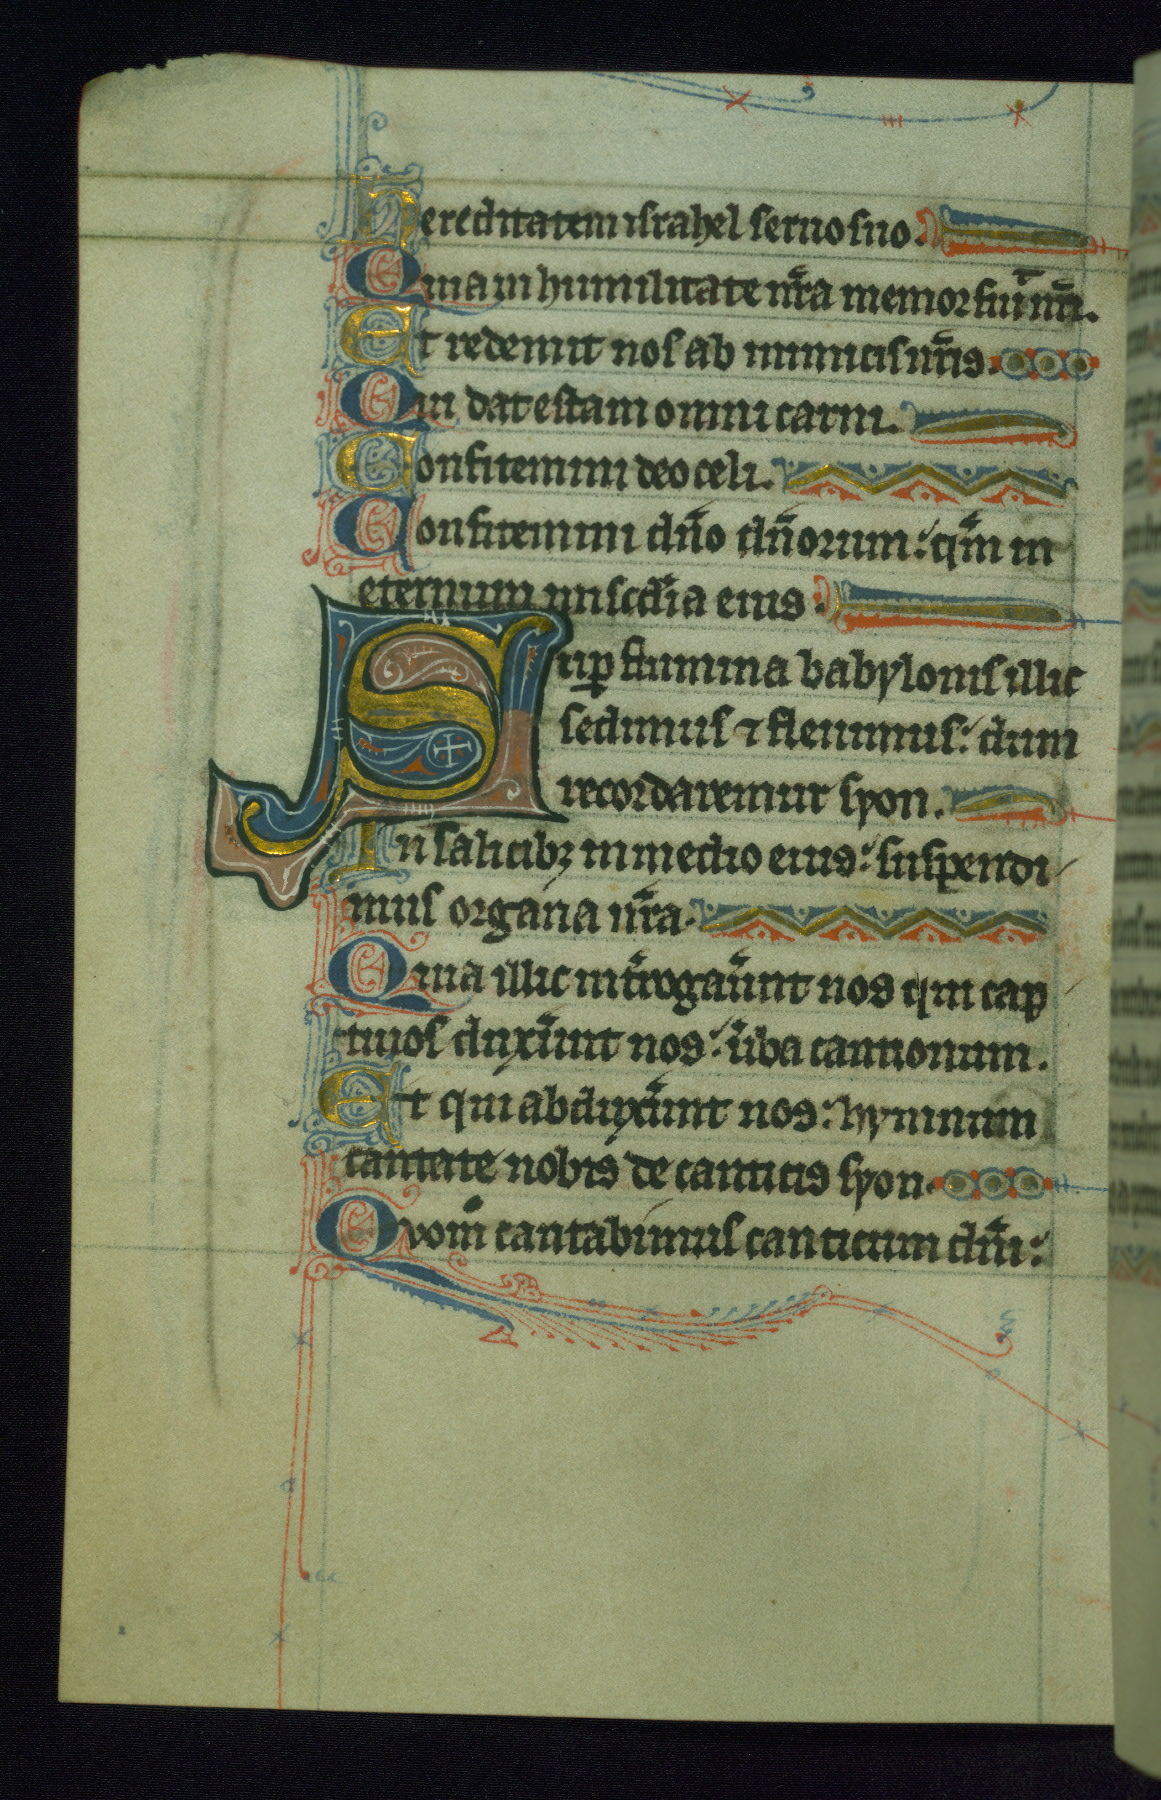 hereditatem israhel seruo suo.
Quia in humilitate nr̄a memor fuit nr̄i.
Et redemit nos ab inimicis nr̄is.
Qui dat escam omni carni.
Confitemini deo celi.
Confitemini dn̄o dn̄orum: qm̄ in
eternum misc̄dia eius.
Sup̱ flumina babylonis illic
sedimus ⁊ fleuimus: dum
recordaremur syon.
In salicibꝫ in medio eius: suspendi
mus organa nr̄a.
Quia illic int̄rogaūnt nos qui cap
tiuos dux̄unt nos: ūba cantionum.
Et qui abdux̄unt nos: hymnum
cantate nobis de canticis syon.
Quom̊ cantabimus canticum dn̄i: